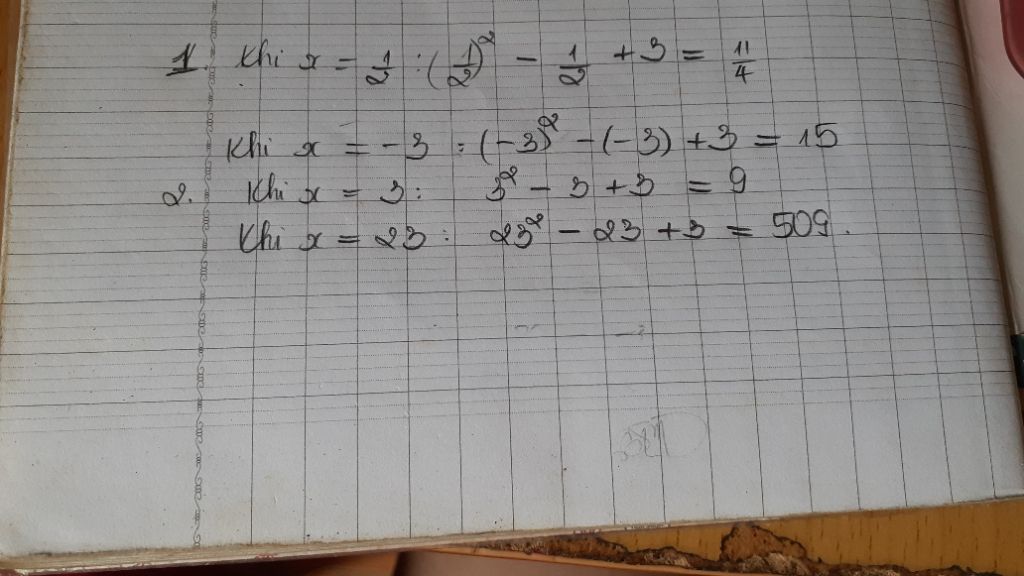 1. Khi x = 1/2 : (1/2)² - 1/2 + 3 = 11/4
Khi x = -3 : (-3)² - (-3) + 3 = 15
2. Khi x = 3 : 3² - 3 + 3 = 9
Khi x = 23 : 23² - 23 + 3 = 509.